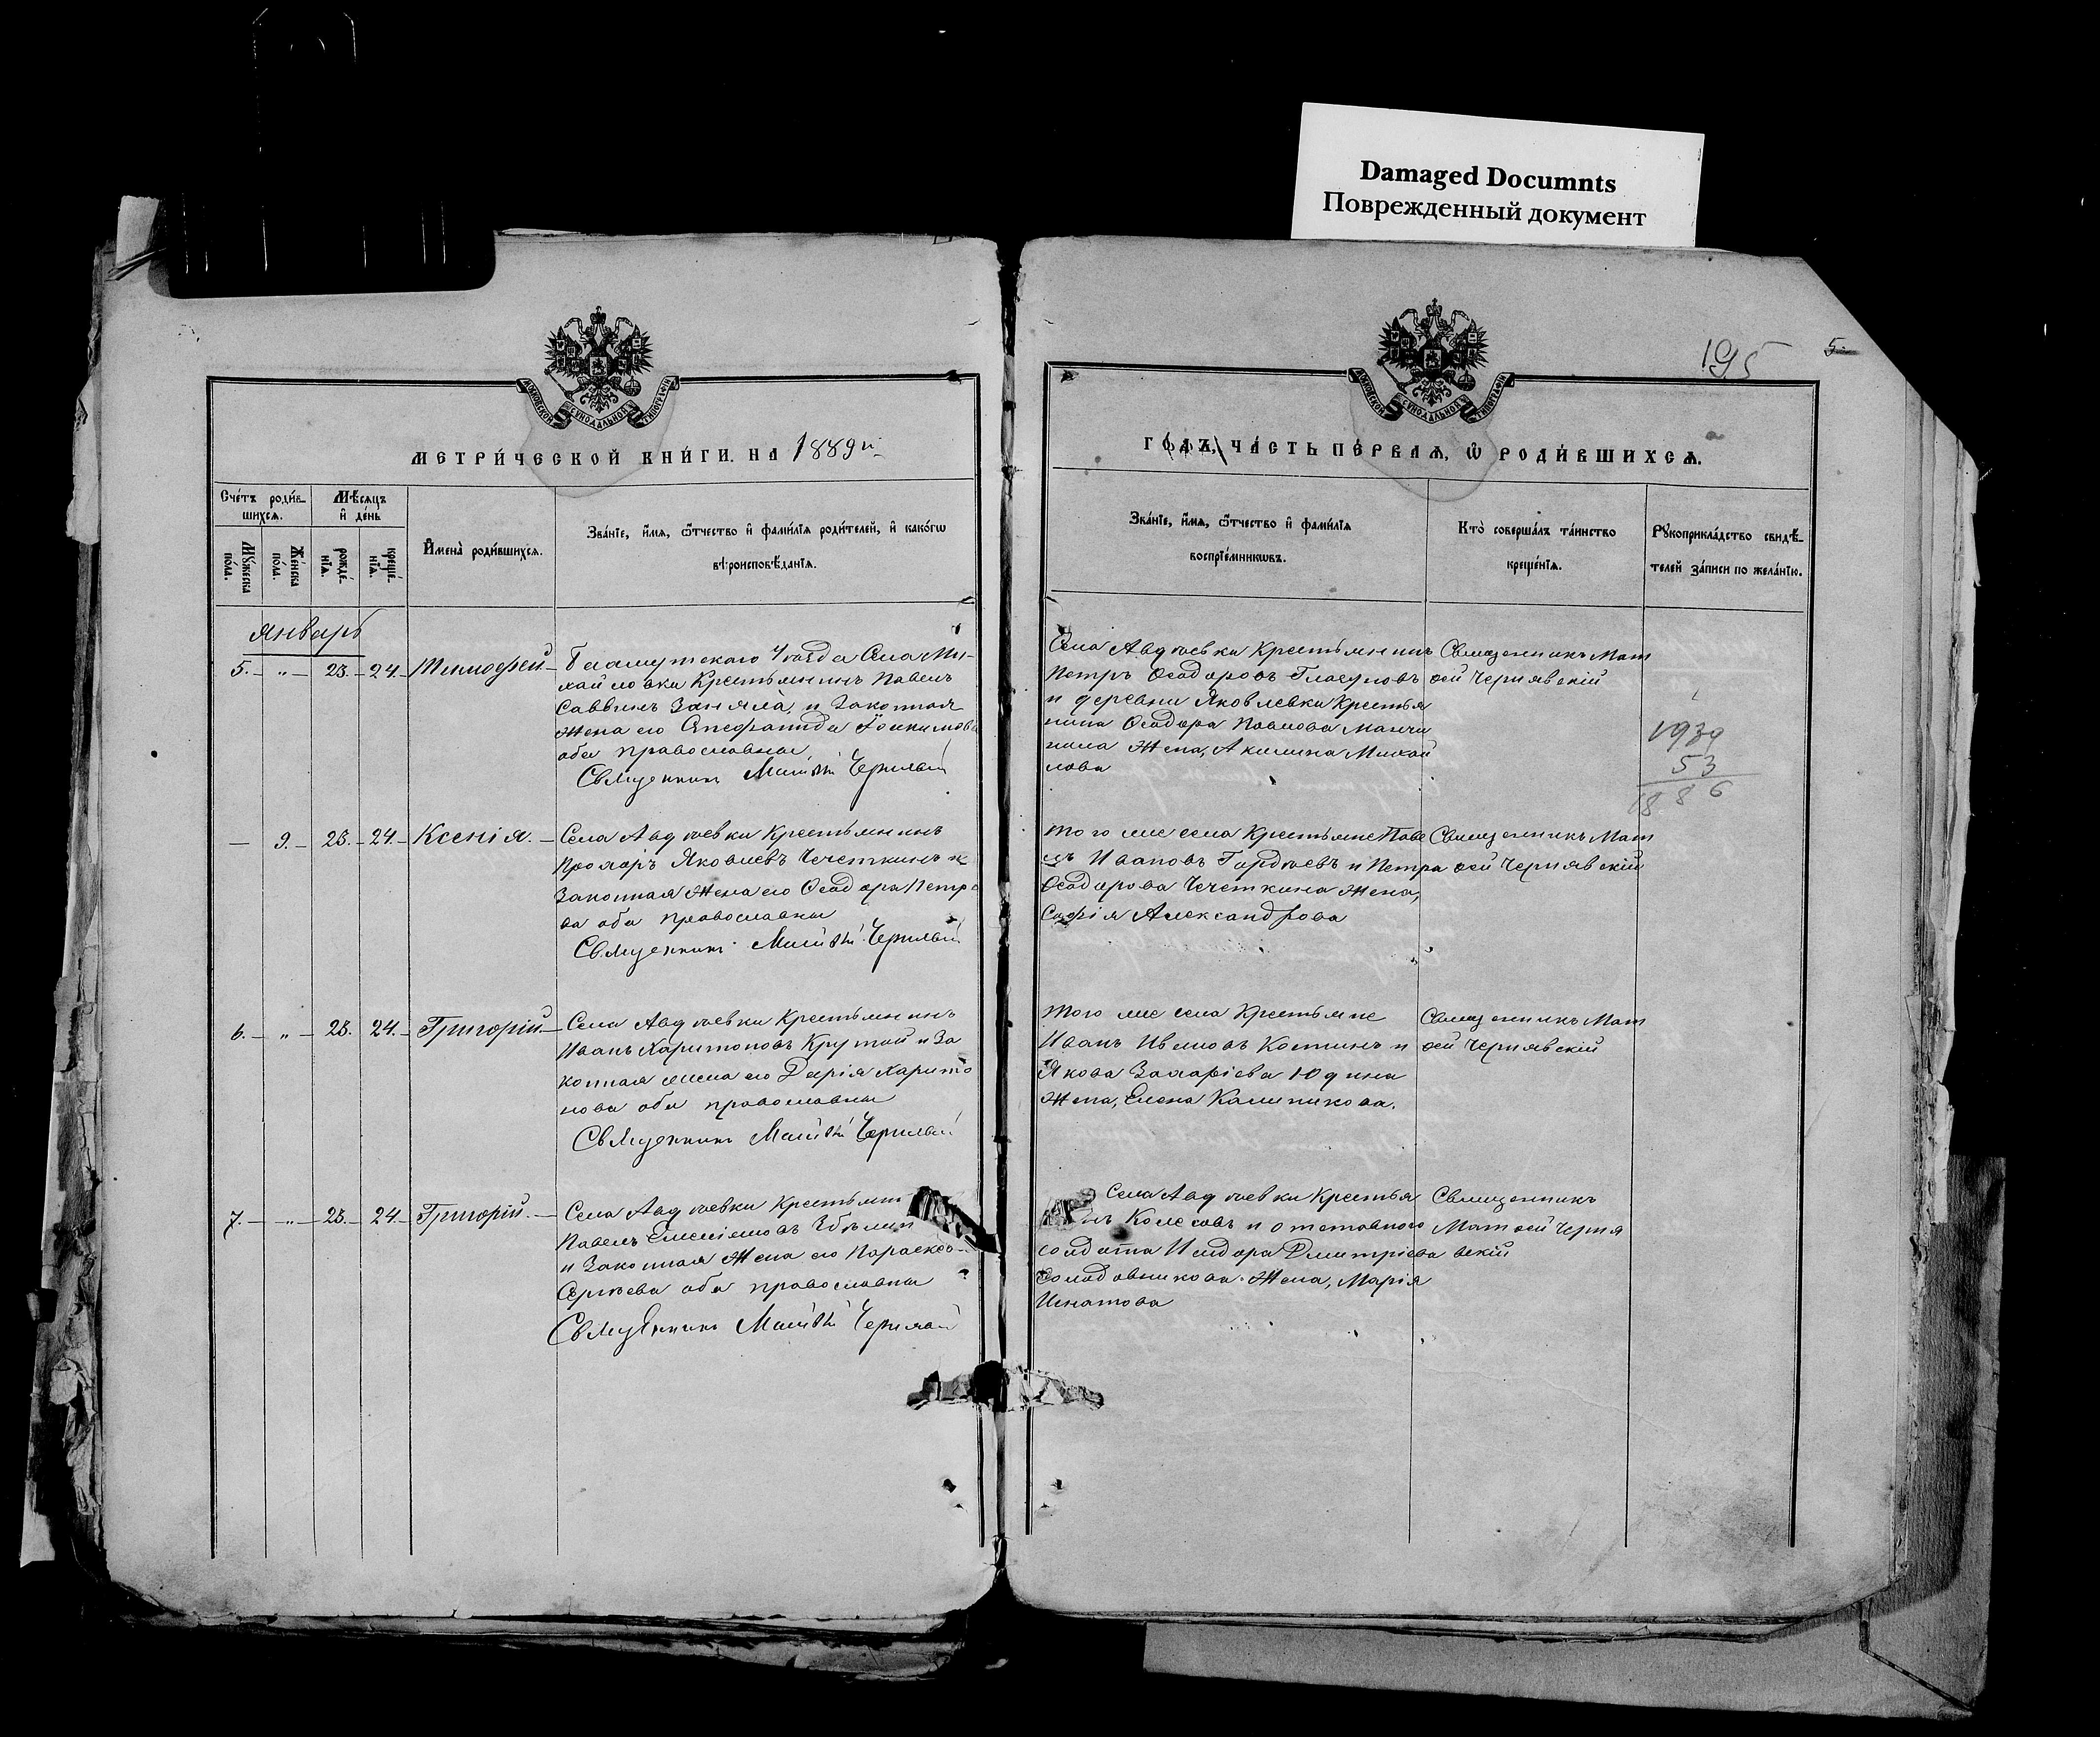 Damaged Documnts
Поврежденный документ
195
5
МОСКОВСКОЙ СѴНОДАЛЬНОЙ ТИПОГРАФІИ
МОСКОВСКОЙ СѴНОДАЛЬНОЙ ТИПОГРАФІИ
МЕТРИ́ЧЕСКОЙ КНИ́ГИ НА 1889й
ГО́ДЪ, ЧА́СТЬ ПЕ́РВАѦ, Ѡ РОДИ́ВШИХСѦ.
Сче́тъ роди́в-
шихсѧ.
Мѣсѧцъ
и҆ де́нь
Мꙋ́жеска
по́ла.
Же́нска
по́ла.
рожде́-
нїѧ.
креще́-
нїѧ.
И҆мена̀ роди́вшихсѧ.
Зва́нїе, и҆́мѧ, ѻ҆́тчество и҆ фами́лїѧ роди́телей, и҆ како́гѡ
вѣроисповѣ́данїѧ.
Зва́нїе, и҆́мѧ, ѻ҆́тчество и҆ фами́лїѧ
воспрїе́мникѡвъ.
Кто̀ соверша́лъ та́инство
креще́нїѧ.
Рꙋкоприкла́дство свидѣ́-
телей за́писи по жела́нїю.
Январь
5. — „ — 23. — 24. — Тимофей. —
Бахмутскаго Уѣзда Села Ми-
хайловки Крестьянинъ Павелъ
Саввинъ Заняла, и Законная
Жена его Епефанида
оба православны
Священникъ Матѳій Чернявскій
Села Авдѣевки Крестьянинъ
Петръ Ѳеодоровъ Гласуновъ
и деревни Яковлевки Крестья
нина Ѳеодора Павлова
Жена, Акилина Михай
лова
Священникъ Мат
ѳей Чернявскій
1939
53
1886
— 9. — 23. — 24. — Ксенія. —
Села Авдѣевки Крестьянинъ
Прохоръ Яковлевъ Чечеткинъ и
Законная Жена его Ѳеодора Петро
ва оба православны
Священникъ Матѳій Чернявскій
того же села Крестьяне Паве
лъ Ивановъ Гордѣевъ и Петра
Ѳеодорова Чечеткина Жена,
Софія Александрова
Священникъ Мат
ѳей Чернявскій
6. — „ — 23. 24. — Григорій. —
Села Авдѣевки Крестьянинъ
Иванъ Харитоновъ Крутой и За
конная жена его Дарія Харито
нова оба православны
Священникъ Матѳій Чернявскій
того же села Крестьяне
Иванъ Ивановъ Костинъ и
Якова Захаріева Юдина
Жена, Елена Калиникова.
Священникъ Мат
ѳей Чернявскій
7. — „ — 23. — 24. — Григорій. —
Села Авдѣевки Крестьян
Павелъ
и Законная Жена его Параскев
Сергѣева оба православны
Священникъ Матѳій Чернявскій
Села Авдѣевки Крестья
Колесовъ и отставного
солдата Исидора Дмитріева
Солодовникова Жена, Марія
Игнатова
Священникъ
Матѳей Черня
вскій